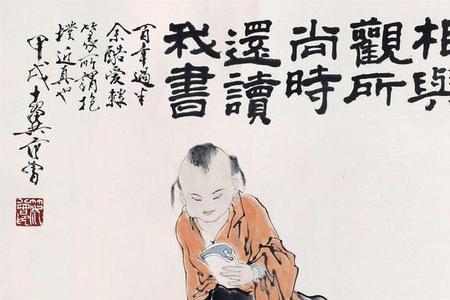 相與
觀所
尚時
還讀
我書
百年過半
余酷愛隸
篆所謂抱
樸近真也
甲戌十翼范曾